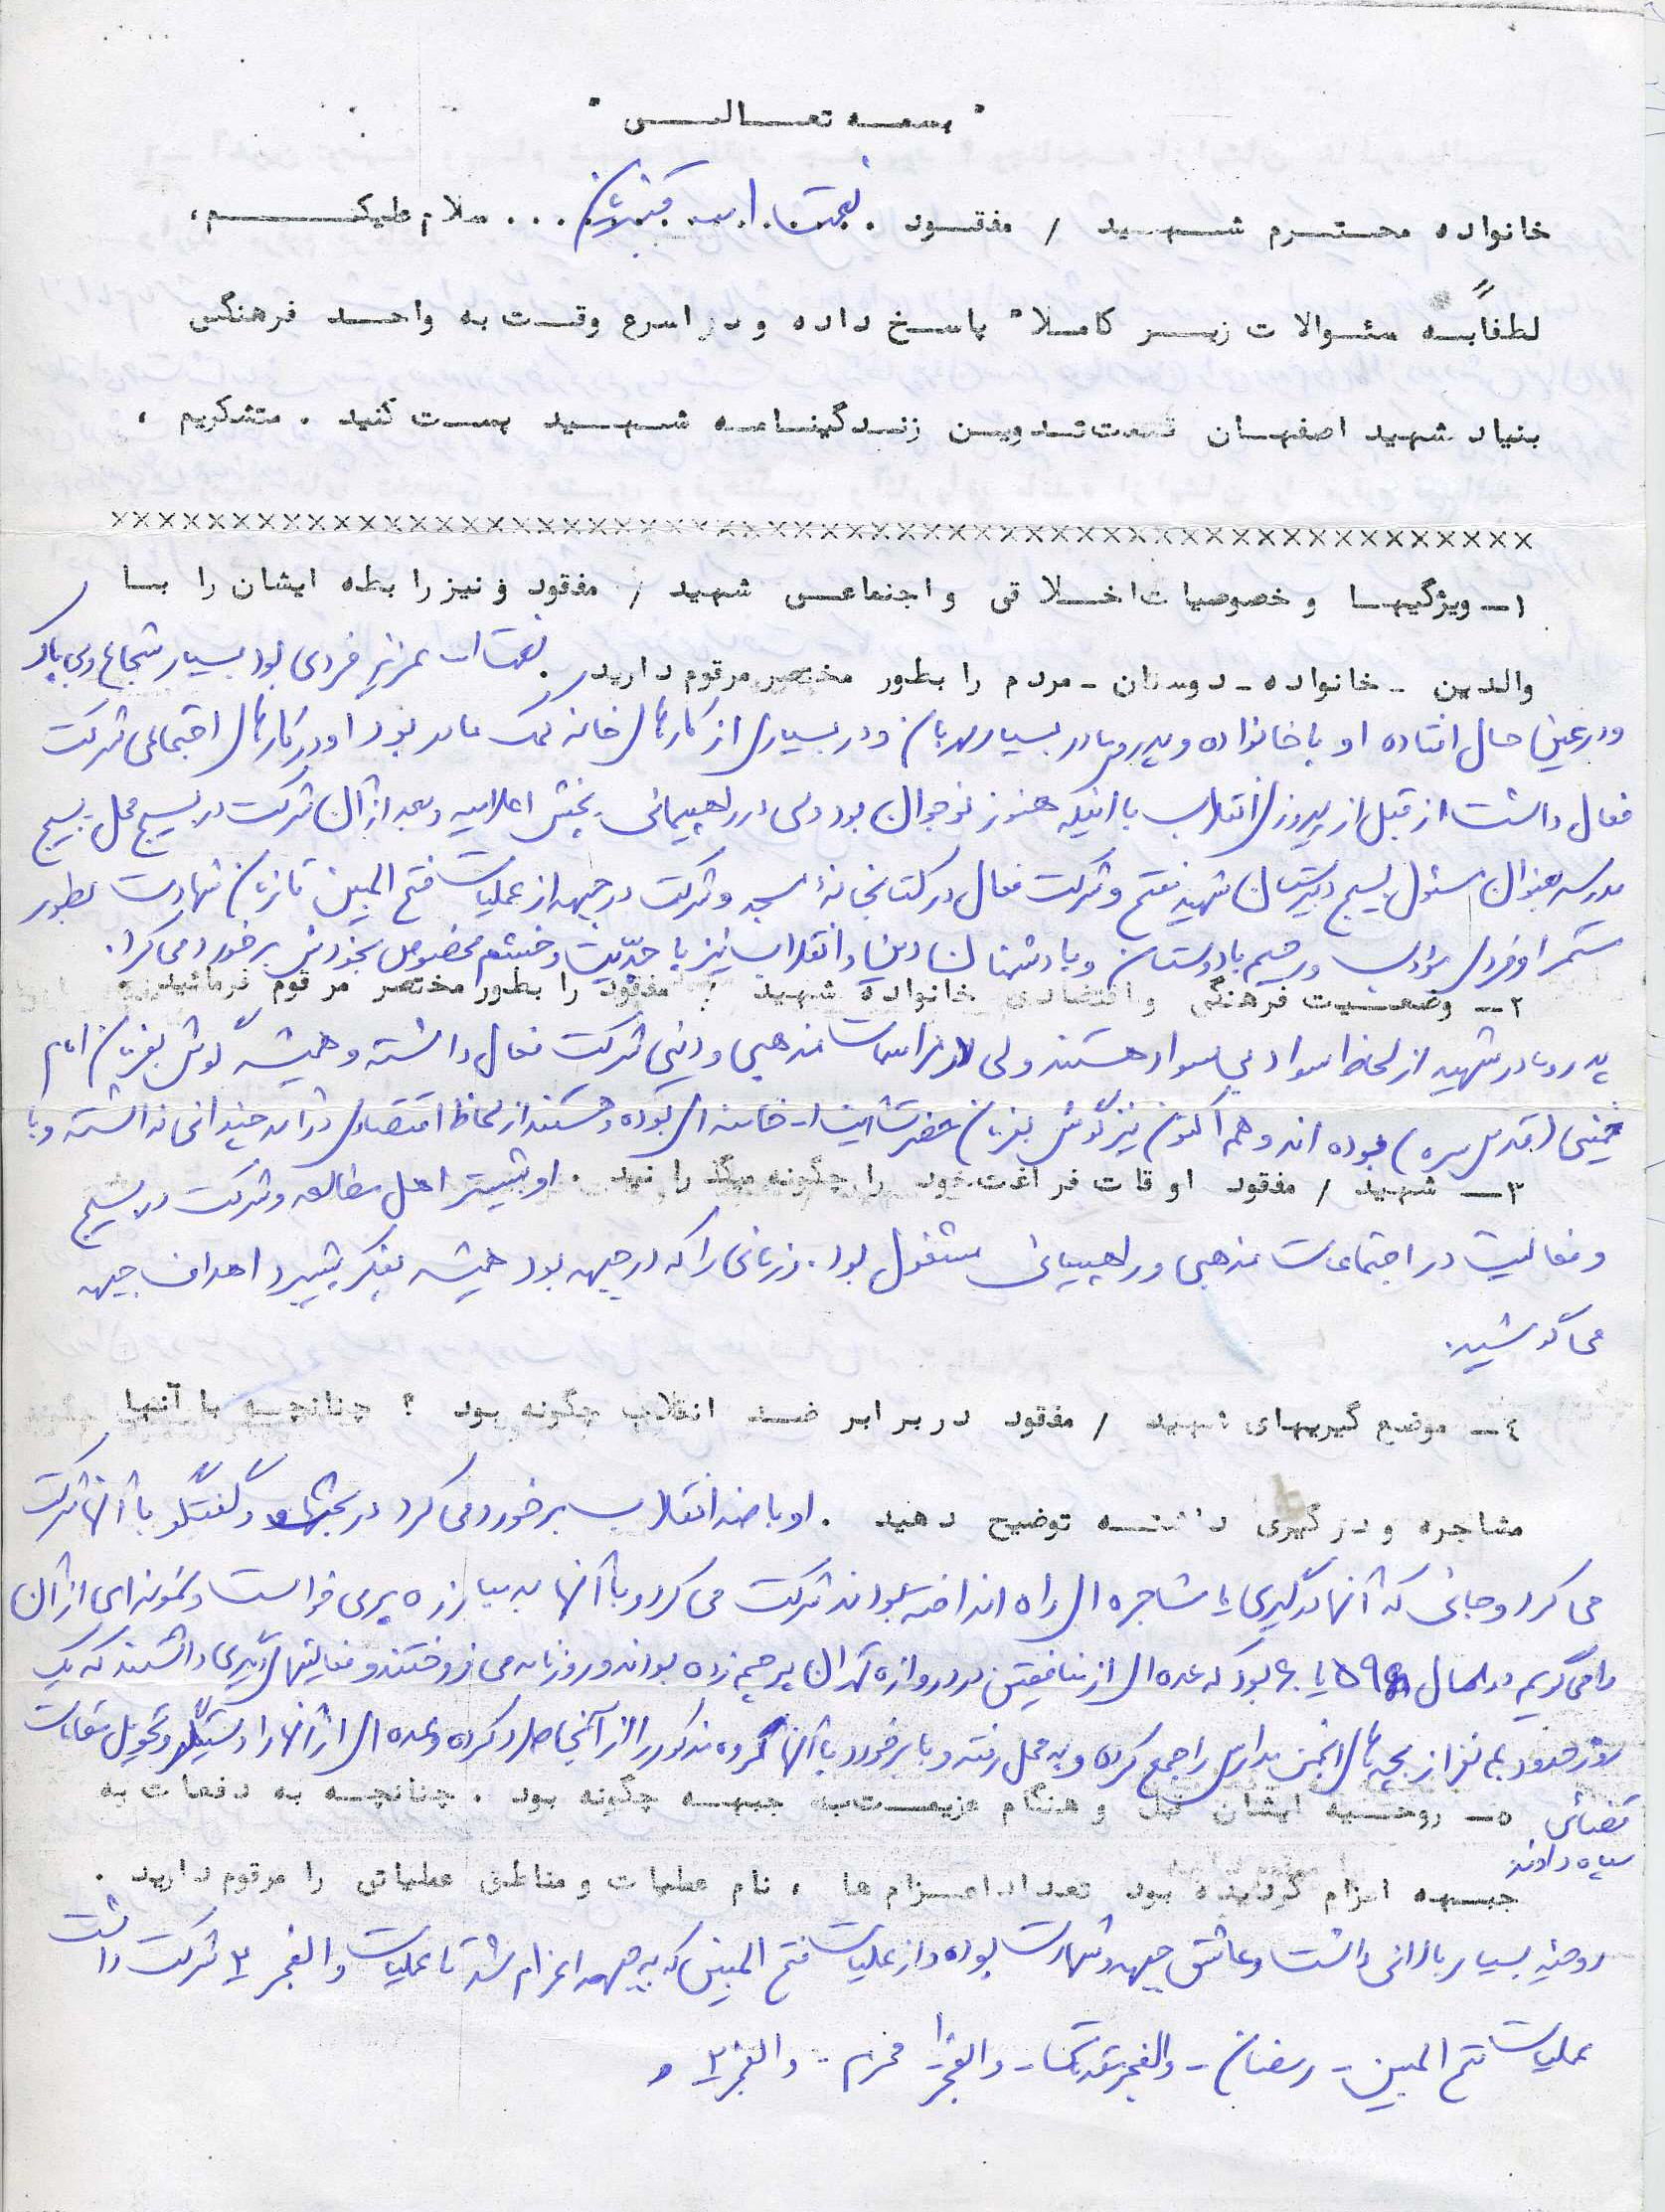 " بسمه تعالی "
خانواده محترم شهید / مفقود . نعمت اله . . . . سلام علیکم ،
لطفاً به سئوالات زیر کاملا" پاسخ داده و در اسرع وقت به واحد فرهنگی
بنیاد شهید اصفهان قسمت تدوین زندگینامه شهید پست کنید . متشکریم ،
××××××××××××××××××××××××××××××××××××××××××××××××××××××××××
۱ـ ویژگیها و خصوصیات اخلاقی و اجتماعی شهید / مفقود و نیز رابطه ایشان را با
والدین ـ خانواده ـ دوستان ـ مردم را بطور مختصر مرقوم دارید . نعمت اله عزیز فردی بود بسیار شجاع و بی باک
و در عین حال افتاده او با خانواده و پدر و مادر بسیار مهربان و در بسیاری از کارهای خانه کمک مادر بود او در کارهای اجتماعی شرکت
فعال داشت از قبل از پیروزی انقلاب با اینکه هنوز نوجوان بود ولی در راهپیمائی پخش اعلامیه و بعد از آن شرکت در بسیج محل بسیج
مدرسه بعنوان مسئول بسیج دبیرستان شهید مفتح و شرکت فعال در کتابخانهٔ مسجد و شرکت در جبهه از عملیات فتح المبین تا زمان شهادت بطور
مستمر او فردی مؤدب و رحیم با دوستان و با دشمنان دین و انقلاب نیز با جدّیت و خشم مخصوص بخودش برخورد می کرد .
۲ـ وضعیت فرهنگی و اقتصادی خانواده شهید / مفقود را بطور مختصر مرقوم فرمائید .
پدر و مادر شهید از لحاظ سواد بی سواد هستند ولی در مراسمات مذهبی و دینی شرکت فعال داشته و همیشه گوش بفرمان امام
خمینی (قدس سره) بوده اند و هم اکنون نیز گوش بفرمان حضرت آیت اله خامنه ای بوده و هستند از لحاظ اقتصادی درآمد چندانی نداشته و با
۳ـ شهید / مفقود اوقات فراغت خود را چگونه میگذرانید . او بیشتر اهل مطالعه و شرکت در بسیج
و فعالیت در اجتماعات مذهبی و راهپیمائی مشغول بود . و زمانی را که در جبهه بود همیشه بفکر پیشبرد اهداف جبهه
می کوشید .
۴ـ موضع گیریهای شهید / مفقود در برابر ضد انقلاب چگونه بود ؟ چنانچه با آنها
مشاجره و درگیری داشته توضیح دهید . او با ضد انقلاب برخورد می کرد در بحثها و گفتگو با آنها شرکت
می کرد و جائی که آنها درگیری یا مشاجره ای راه انداخته بودند شرکت می کرد و با آنها به مبارزه بر می خواست و نمونه ای از آن
را می گویم در سال ۵۹ یا ۶۰ بود که عده ای از منافقین در دروازه تهران پرچم زده بودند و روزنامه می فروختند و فعالیتهای دیگری داشتند که یک
روز حدود نفر از بچه های انجمن مدارس را جمع کرده و به محل رفته و با برخورد با آنها گروه مذکور را از آنجا طرد کرده و عده ای از آنها را دستگیر و تحویل مقامات
قضائی سپاه دادند
۵ـ روحیه ایشان قبل و هنگام عزیمت به جبهه چگونه بود . چنانچه به دفعات به
جبهه اعزام گردیده بود تعداد اعزام ها ، نام عملیات و مناطق عملیاتی را مرقوم دارید .
روحیهٔ بسیار بالائی داشت و عاشق جبهه و شهادت بوده و از عملیات فتح المبین که به جبهه اعزام شد تا عملیات والفجر ۲ شرکت داشت
عملیات فتح المبین ـ رمضان ـ والفجر مقدماتی ـ والفجر ۱ محرم ـ والفجر ۲ و